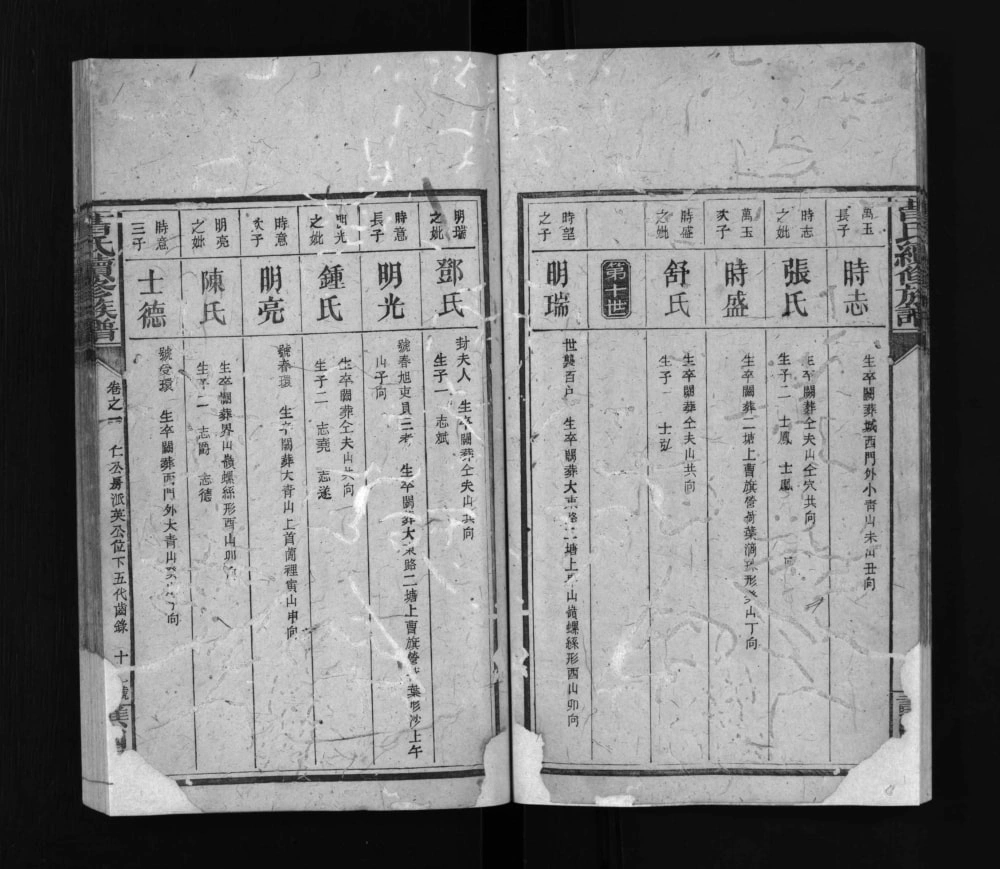 氏續修族譜
萬玉長子
時志
生卒闕葬城西門外小青山未山丑向
時志之妣
張氏
生卒闕葬仝夫山仝穴共向
生子二 士鳳 士
萬玉次子
時盛
生卒闕葬二塘上曹旗營荷葉滴珠形山丁向
時盛之妣
舒氏
生卒闕葬仝夫山共向
生子一 士弘
第十世
時望之子
明瑞
世襲百户 生卒闕葬大東路二塘上山嶺螺絲形酉山卯向
明瑞之妣
鄧氏
封夫人 生卒闕葬仝夫山共向
生子一 志斌
時意長子
明光
號春旭吏員三考 生卒闕葬大東路二塘上曹旗營葉形沙上午
山子向
明光之妣
鍾氏
生卒闕葬仝夫山共向
生子二 志堯 志遂
時意次子
明亮
號春環 生卒闕葬大青山上首茼裡寅山申向
明亮之妣
陳氏
生卒闕葬界山嶺螺絲形酉山卯向
生子二 志爵 志德
時意三子
士德
號愛環 生卒闕葬西門外大青山丁向
氏續修族譜
卷之一 仁公房派英公位下五代齒錄 十號